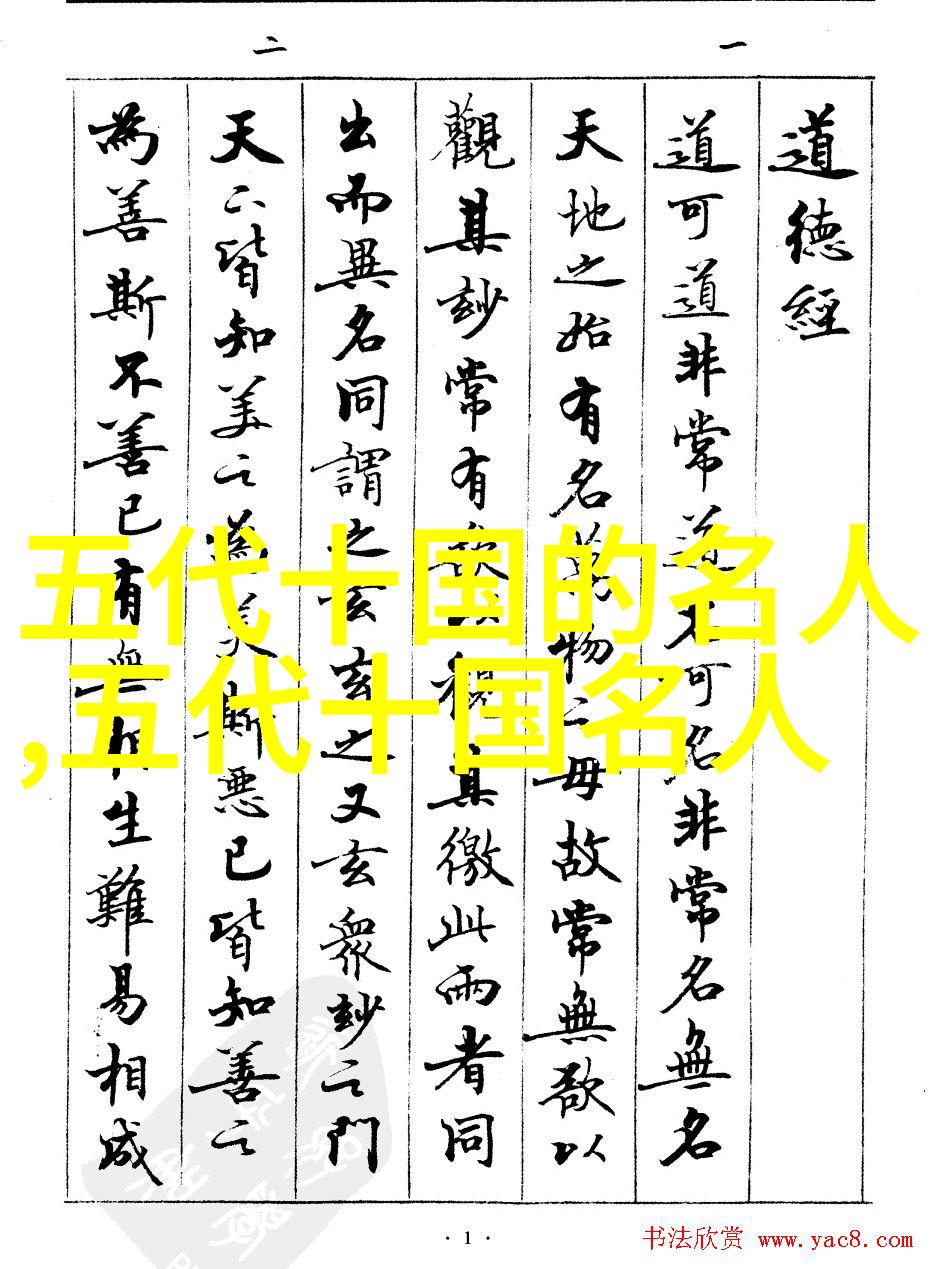 一
二
道德經
道可道非常道名可名非常名無名
天地之始有名萬物之母故常無欲以
觀其玅常有欲以觀其徼此兩者同
出而異名同謂之玄玄之又玄眾玅之門
天下皆知美之為美斯惡已皆知善之
為善斯不善已有無相生難易相成
五代十国的名人
,五代十国名人
· 1 ·
书法欣赏 www.yac8.com